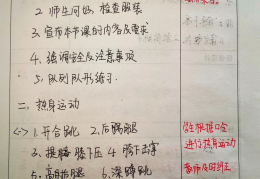 2. 师生问好，检查服装
3. 宣布本节课的内容及要求
4. 强调安全及注意事项
5. 队列队形练习.
二、热身运动
<一> 1. 开合跳 2. 后踢腿
学生根据口令
3. 提膝下压 4. 胯下击掌
进行热身运动
5. 高抬腿 6. 深蹲跳
教师及时纠正